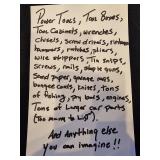 Power Tools, Tool Boxes,
Tool Cabinets, wrenches,
Chisels, screw drivers, vintage
hammers, ratchets, pliers,
wire strippers, Tin snips,
screws, nails, staple guns,
sand paper, garbage cans,
bungee cords, knives, tons
of fishing, big boats, engines,
Tons of Larger car parts
(too many to list).
And anything else
you can imagine!!